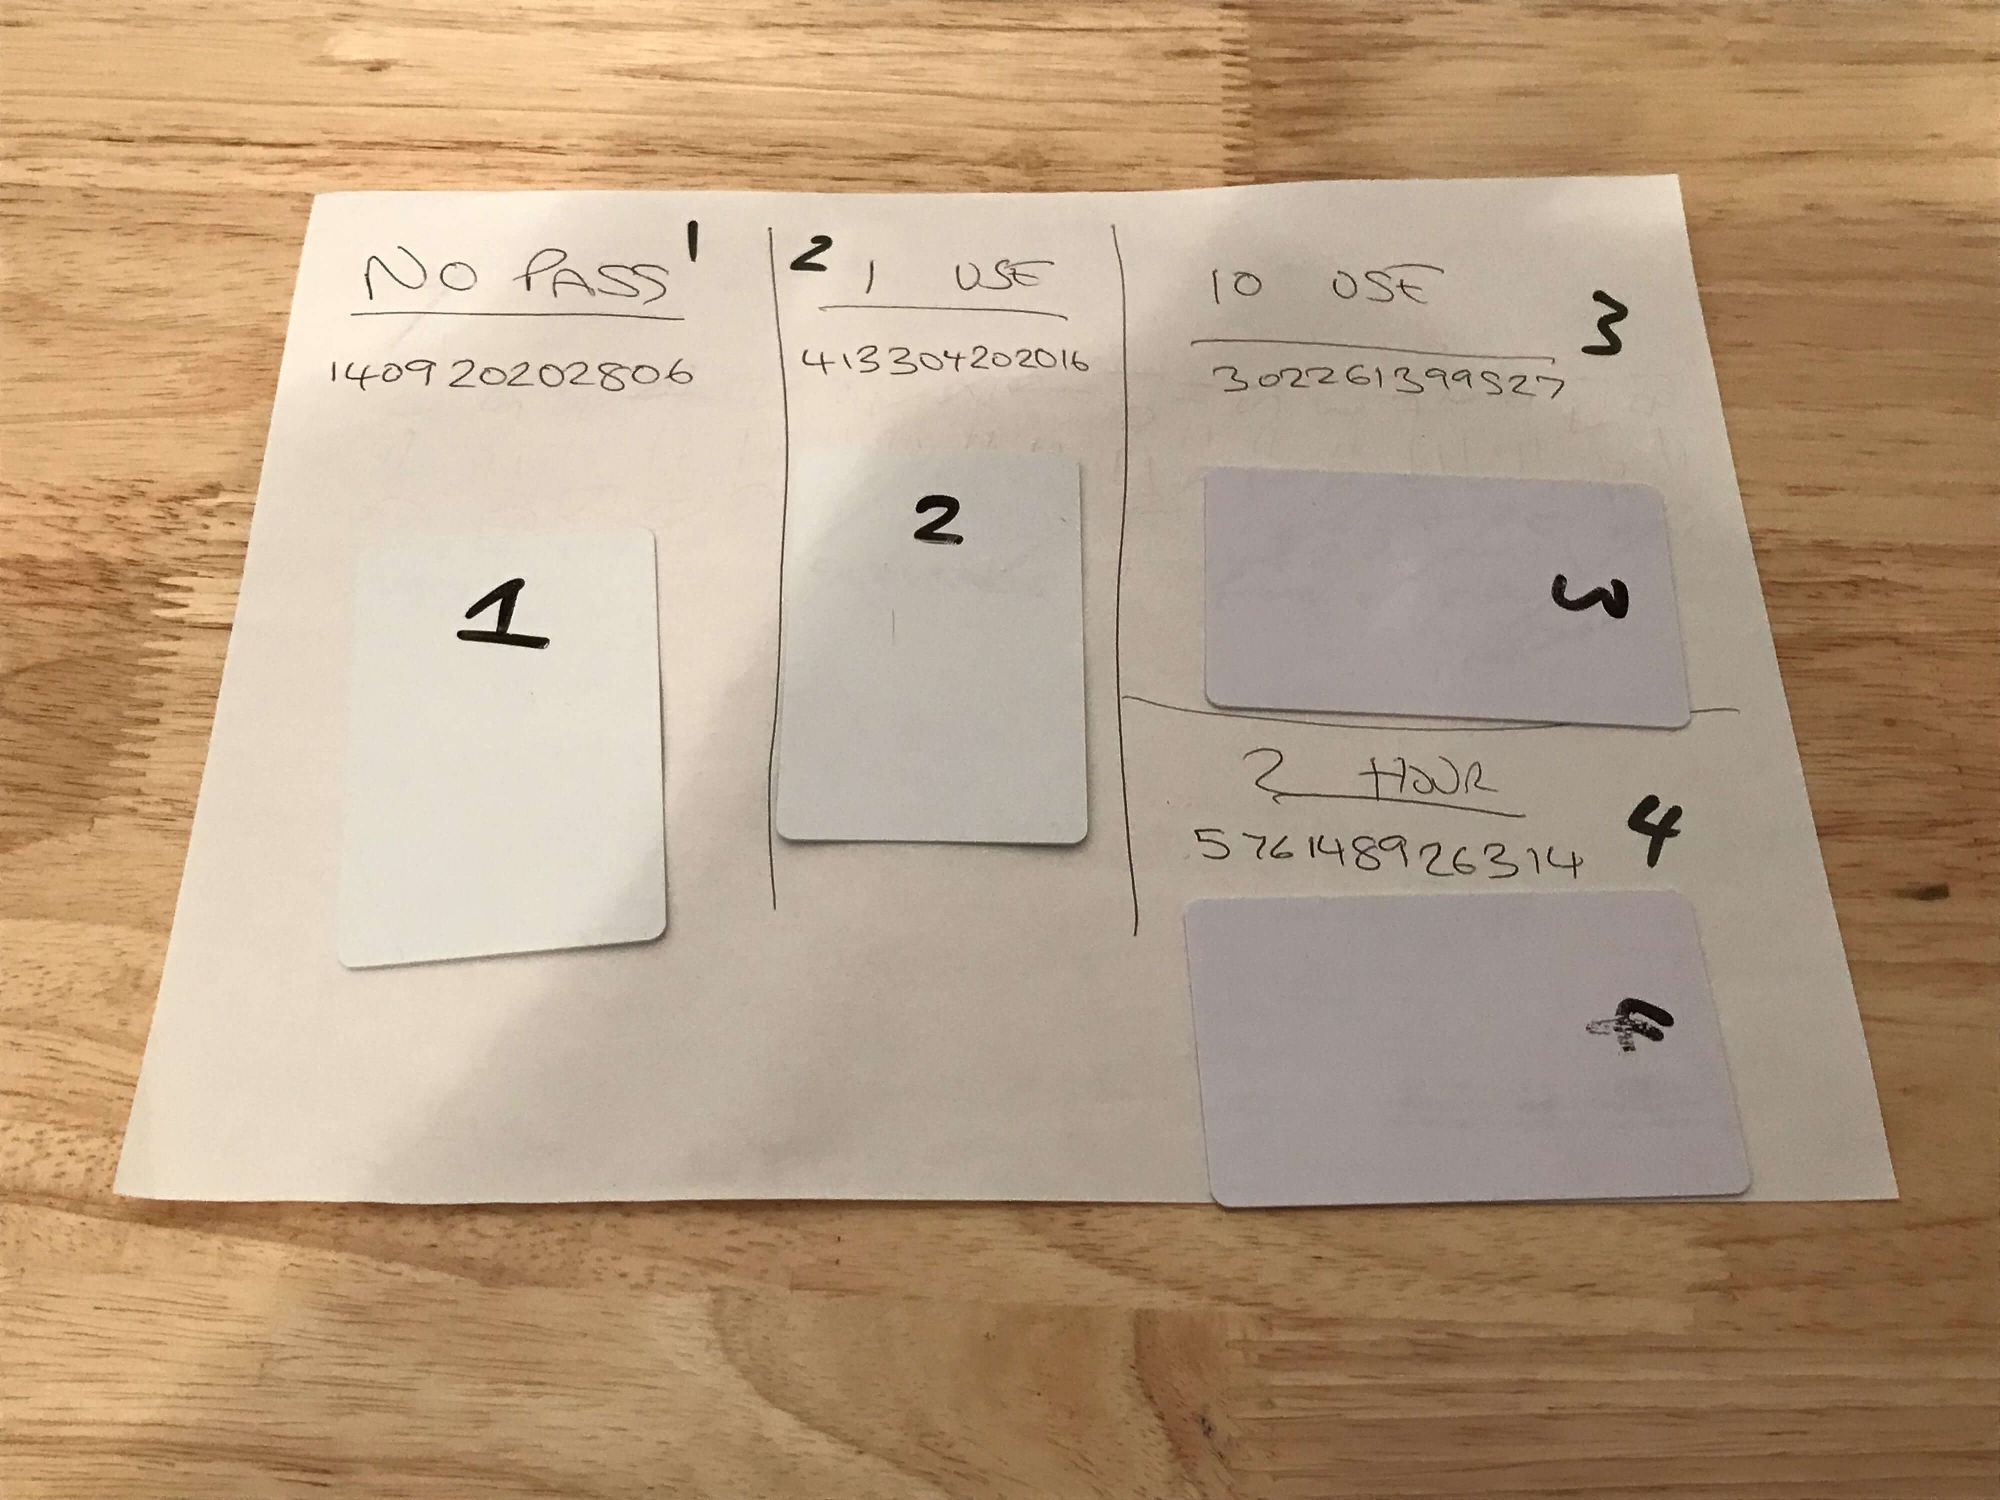 NO PASS 1
140920202806
1
2 1 USE
413304202016
2
10 USE 3
302261399527
3
2 HOUR 4
576148926314
4